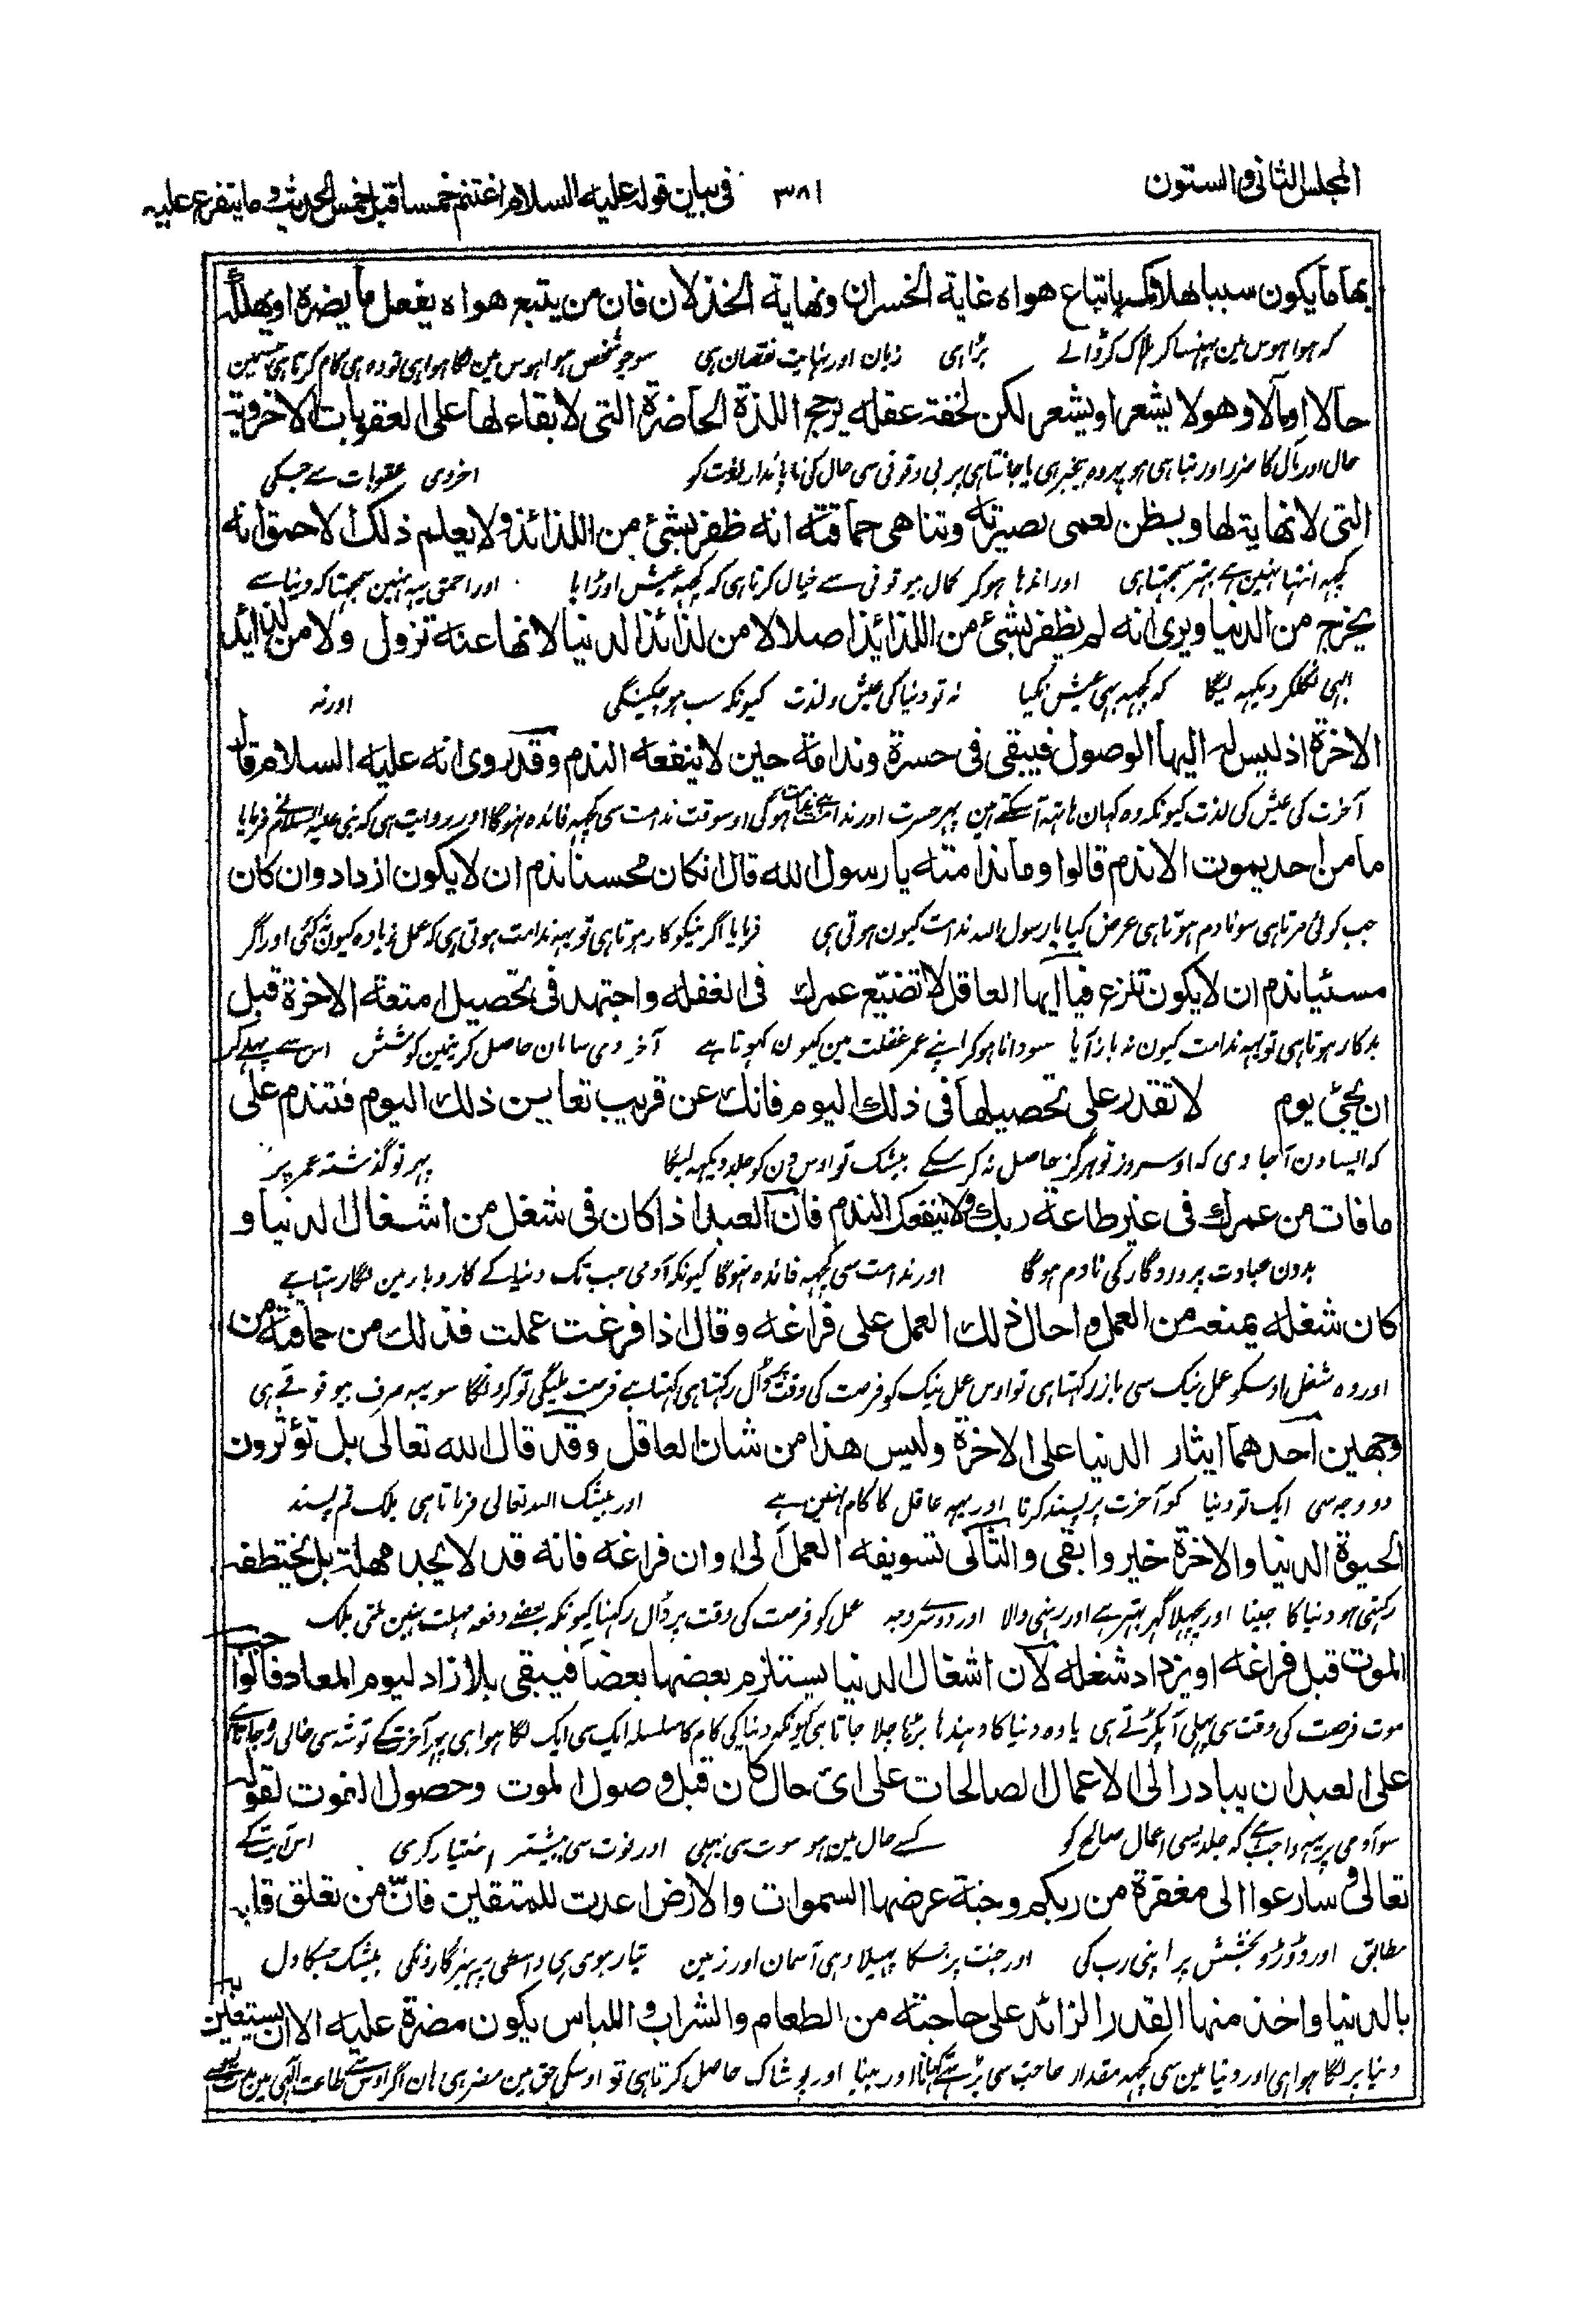 المجلس الثانی والستون
۳۸۱
فی بیان قوله علیه السلام اغتنم خمسا قبل خمس الحدیث و ما یتفرع علیه
بها ما یکون سببا هلاکه باتباع هواه غایة الخسران ونهایة الخذلان فان من یتبع هواه یفعل ما یضره او یهلکه
که هوا هوس مین پهنساکر هلاک کر ڈالے بڑا هی زیان اور نهایت نقصان هی سو جو شخص هوا هوس مین لگا هوا هی تو وه هی کام کرتا هی جسمین
حالا او مآلا و هو لا یشعر او یشعر لکن لخفة عقله یرجح اللذة الحاضرة التی لا بقاء لها علی العقوبات الاخرویة
حال اور مآل کا ضرر اور تباهی هو پهر وه بیخبر هی یا جانتا هی پر بی وقوفی سی حال کی ناپائدار لذت کو اخروی عقوبات سے جسکی
التی لا نهایة لها و یظن لعمی بصیرته وتناهی حماقته انه ظفر بشئ من اللذائذ ولا یعلم ذلک الاحمق انه
کچهه انتها نهین هے بهتر سمجهتا هی اور اندها هوکر کمال بیوقوفی سے خیال کرتا هی که کچهه عیش اوڑایا اور احمق یهه نهین سمجهتا که دنیا سے
یخرج من الدنیا ویری انه لم یظفر بشئ من اللذائذ اصلا لا من لذائذ الدنیا لانها عنه تزول ولا من لذائذ
ابهی نکلکر دیکهه لیگا که کچهه بهی عیش نکیا نه تو دنیا کی عیش و لذت کیونکه سب هو چکینگی اور نه
الاخرة اذ لیس له الیها الوصول فیبقی فی حسرة وندامة حین لا ینفعه الندم وقد روی انه علیه السلام قال
آخرت کی عیش کی لذت کیونکه وه کهان هاتهه آسکتے هین پهر حسرت اور ندامت هوگی اوسوقت ندامت سی کچهه فائده نهوگا اور روایت هی که نبی علیه السلام نے فرمایا
ما من احد یموت الا ندم قالوا وما ندامته یا رسول الله قال انکان محسنا ندم ان لا یکون ازداد وان کان
جب کوئی مرتا هی سو نادم هوتا هی عرض کیا یا رسول الله ندامت کیون هوتی هی فرمایا اگر نیکوکار هوتا هی تو یهه ندامت هوتی هی که عمل زیاده کیون نکئی اور اگر
مسئیا ندم ان لا یکون نزع فیا ایها العاقل لا تضیّع عمرک فی الغفلة واجتهد فی تحصیل امتعة الاخرة قبل
بدکار هوتا هی تو یهه ندامت کیون نه باز آیا سو دانا هوکر اپنے عمر غفلت مین کیون کهوتا هے آخروی سامان حاصل کرنیمین کوشش اس سے پهلے کر
ان یجئ یوم لا تقدر علی تحصیلها فی ذلک الیوم فانک عن قریب تعاین ذلک الیوم فتندم علی
که ایسا دن آجاوی که اوسروز تو هرگز حاصل نه کر سکے بیشک تو اوس دن کو جلد دیکهه لیگا پهر تو گذشته عمر پر
ما فات من عمرک فی غیر طاعة ربک ولا ینفعک الندم فان العبد اذا کان فی شغل من اشغال الدنیا و
بدون عبادت پروردگار کی نادم هوگا اور ندامت سی کچهه فائده نهوگا کیونکه آدمی جب تک دنیا کے کاروبار مین لگا رهتا هے
کان شغله یمنعه من العمل واحال ذلک العمل علی فراغه وقال اذا فرغت عملت فذلک من حماقته من
اور وه شغل اوسکو عمل نیک سی باز رکهتا هی تو اوس عمل نیک کو فرصت کی وقت پر ڈال رکهتا هی کهتا هے فرصت ملیگی تو کرونگا سو یهه صرف بیوقوفے هی
وجهین احدهما ایثار الدنیا علی الاخرة ولیس هذا من شان العاقل وقد قال الله تعالی بل تؤثرون
دو وجه سی ایک تو دنیا کو آخرت پر پسند کرنا اور یهه عاقل کا کام نهین هے اور بیشک الله تعالی فرماتا هی بلکه تم پسند
الحیوة الدنیا والاخرة خیر وابقی والثانی تسویفه العمل الی اوان فراغه فانه قد لا یجد مهلة بل یختطفه
رکهتی هو دنیا کا جینا اور پچهلا گهر بهتر هے اور رهنی والا اور دوسرے وجه عمل کو فرصت کی وقت پر ڈال رکهنا کیونکه بعضے دفعه مهلت نهین ملتی بلکه
الموت قبل فراغه او یزداد شغله لان اشغال الدنیا یستلزم بعضها بعضا فیبقی بلا زاد لیوم المعاد فالواجب
موت فرصت کی وقت سی پهلی آپکڑتے هی یا وه دنیا کا دهندها بڑهتا چلا جاتا هی کیونکه دنیا کی کام کا سلسله ایک سی ایک لگا هوا هی پهر آخرت کے توشه سی خالی رهجاتا هے
علی العبد ان یبادر الی الاعمال الصالحات علی ای حال کان قبل وصول الموت وحصول الفوت لقوله
سو آدمی پر یهه واجب هے که جلدیسی اعمال صالح کو کسے حال مین هو موت سی پهلی اور فوت سی پیشتر اختیار کری اس آیت کے
تعالی و سارعوا الی مغفرة من ربکم وجنة عرضها السموات والارض اعدت للمتقین فانّ من تعلق قلبه
مطابق اور دوڑو بخشش پر اپنی رب کی اور جنت پر جسکا پهیلاو هی آسمان اور زمین تیار هوی هی واسطی پرهیزگارونکی بیشک جسکا دل
بالدنیا واخذ منها القدر الزائد علی حاجته من الطعام والشراب و اللباس یکون مضرة علیه الا ان یستعین
دنیا پر لگا هوا هی اور دنیا مین سی کچهه مقدار حاجت سی بڑهتے کهانا اور پینا اور پوشاک حاصل کرتا هی تو اوسکی حق مین مضر هی هان اگر اوس سے طاعت الهی مین